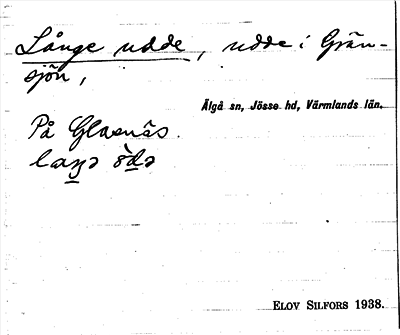 Långe udde, udde i Grän-
sjön,
Älgå sn, Jösse hd, Värmlands län.
På Glasnäs.
laŋə òdə
ELOV SILFORS 1938.